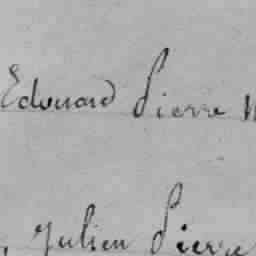 Edouard Pierre
, Julien Pierre